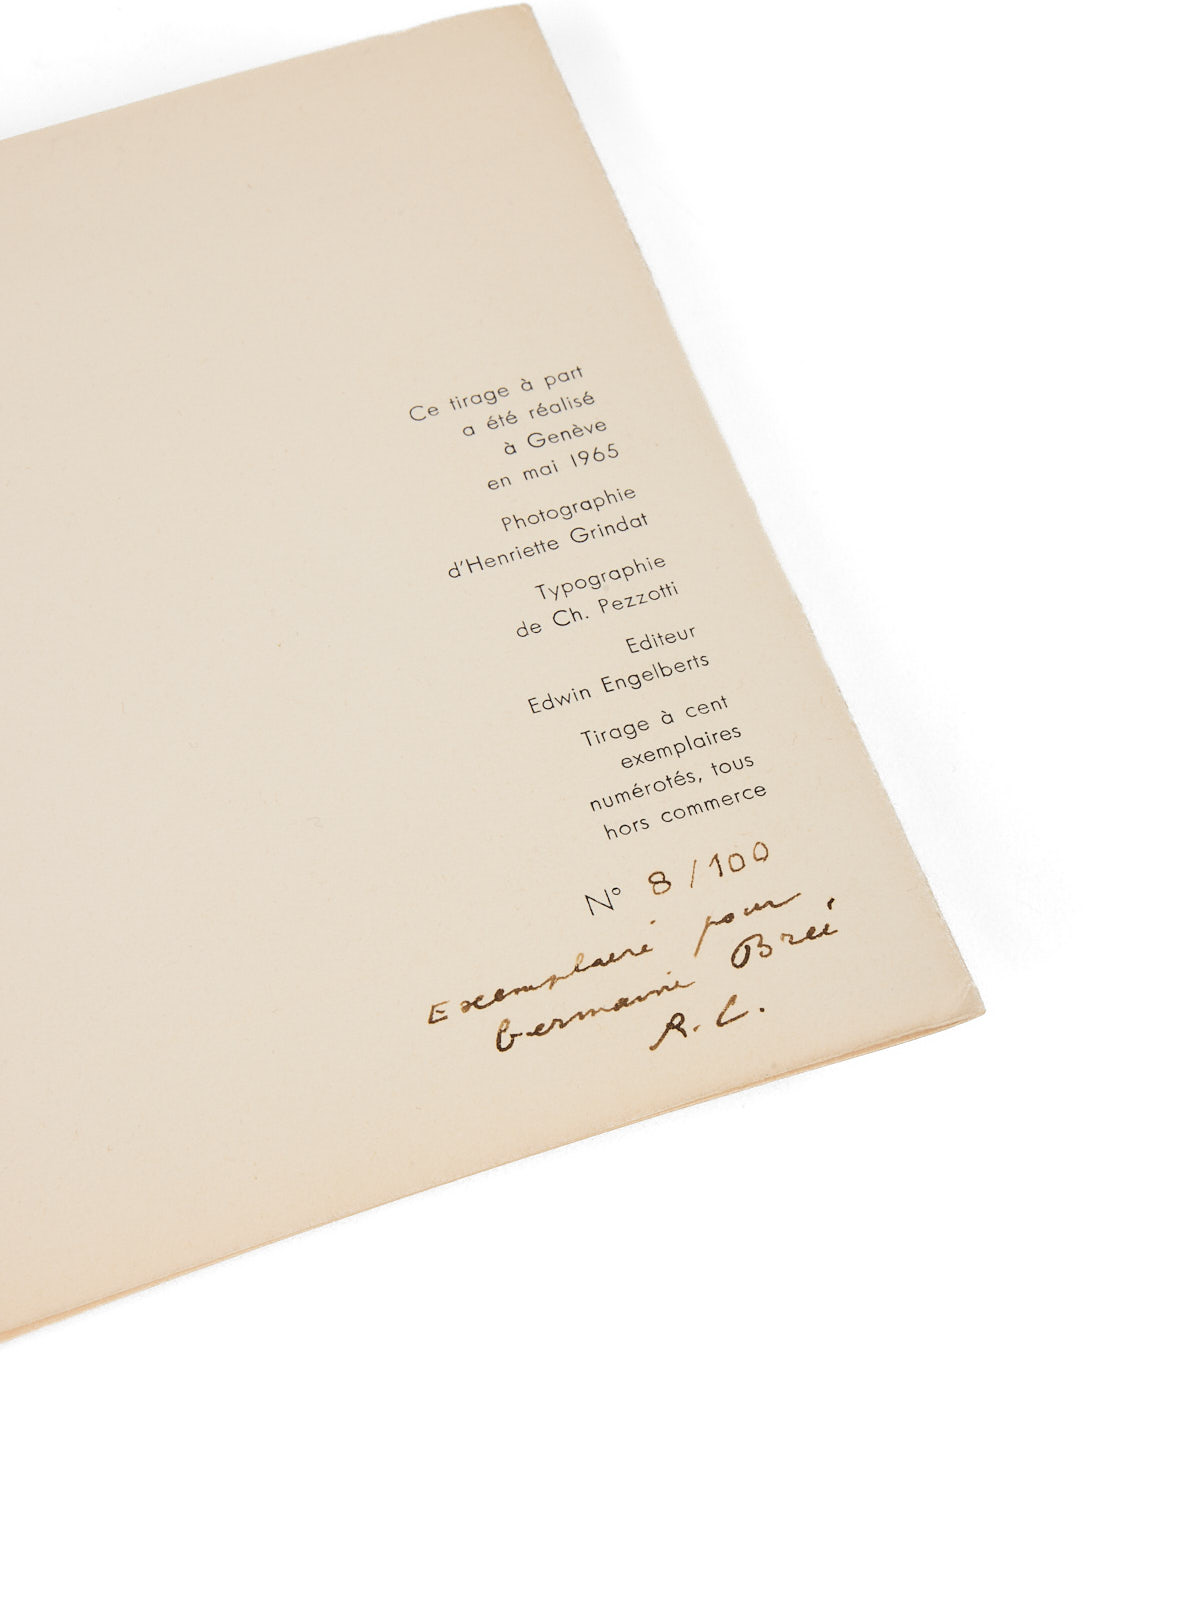 Ce tirage à part
a été réalisé
à Genève
en mai 1965
Photographie
d'Henriette Grindat
Typographie
de Ch. Pezzotti
Editeur
Edwin Engelberts
Tirage à cent
exemplaires
numérotés, tous
hors commerce
N° 8/100
Exemplaire pour
Germaine Breé
R. C.